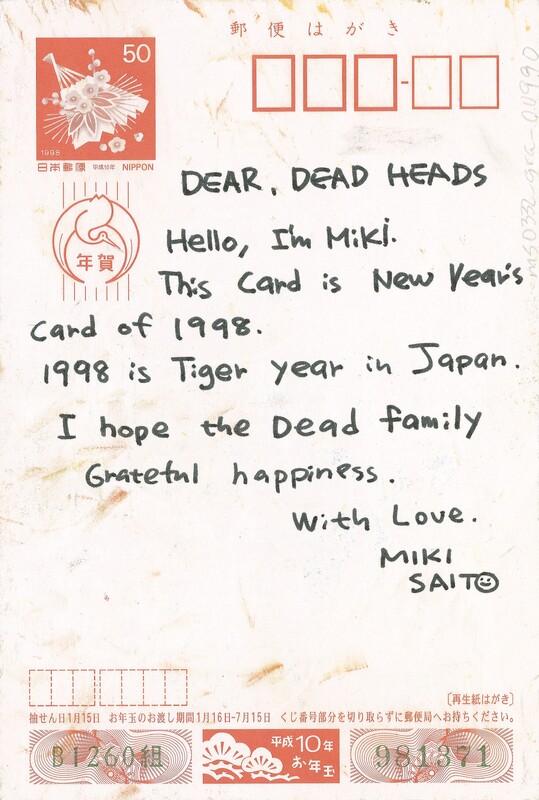 郵便はがき
50
1998
日本郵便 平成10年 NIPPON
年賀
ms0332_gra_011990
DEAR, DEAD HEADS
Hello, I'm MiKi.
This Card is New Year's
Card of 1998.
1998 is Tiger year in Japan.
I hope the Dead family
Grateful happiness.
With Love.
MIKI
SAITO
〔再生紙はがき〕
抽せん日1月15日 お年玉のお渡し期間1月16日-7月15日 くじ番号部分を切り取らずに郵便局へお持ちください。
B1260組
平成10年
お年玉
981371